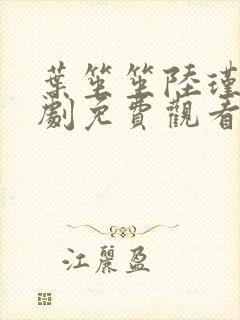 葉笙笙陸瑾
劇免費觀看
江麗盈